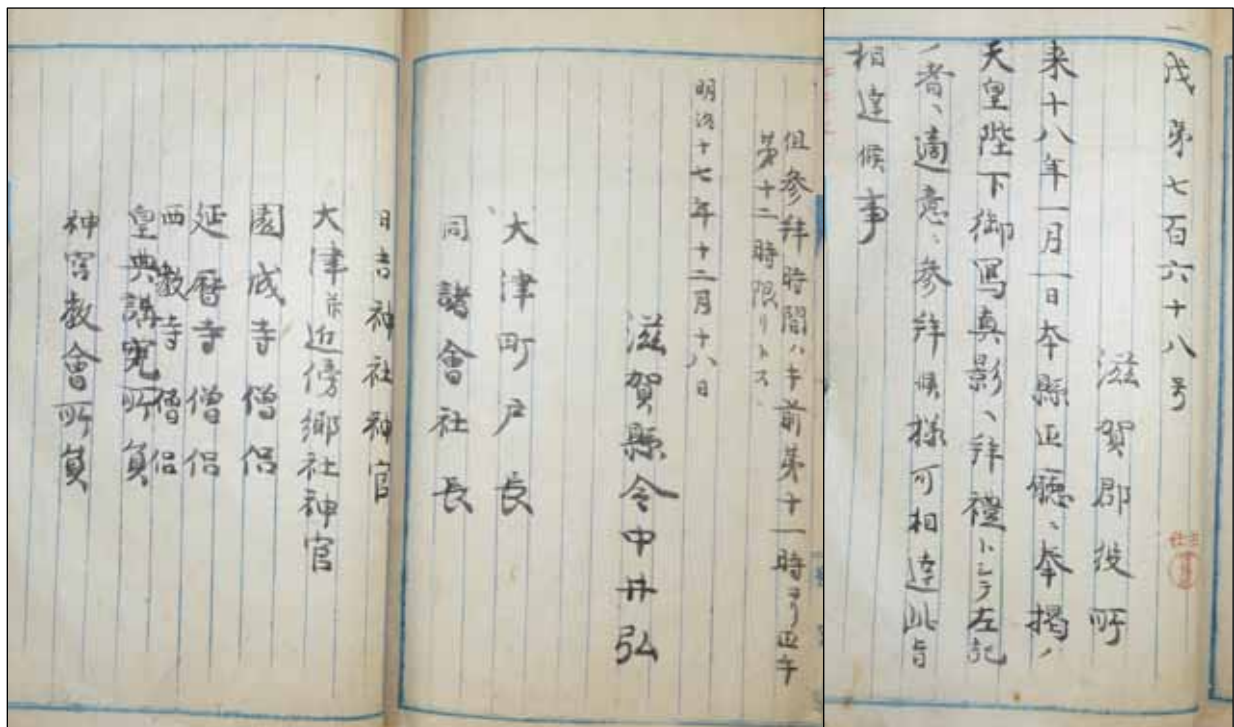 戊第七百六十八号
滋賀郡役所
来十八年一月一日本縣正廳ヘ奉掲ノ
天皇陛下御写真影ヘ拝禮トシテ左記
ノ者ヘ適意ヘ参拝候様可相達此旨
相達候事
但参拝時間ハ午前第十一時ヨリ正午
第十二時限リトス
明治十七年十二月十八日
滋賀縣令中井弘
大津町戸長
同諸會社長
日吉神社神官
大津并近傍郷社神官
園成寺僧侶
延暦寺僧侶
西教寺僧侶
皇典講究所員
神宮教會所員